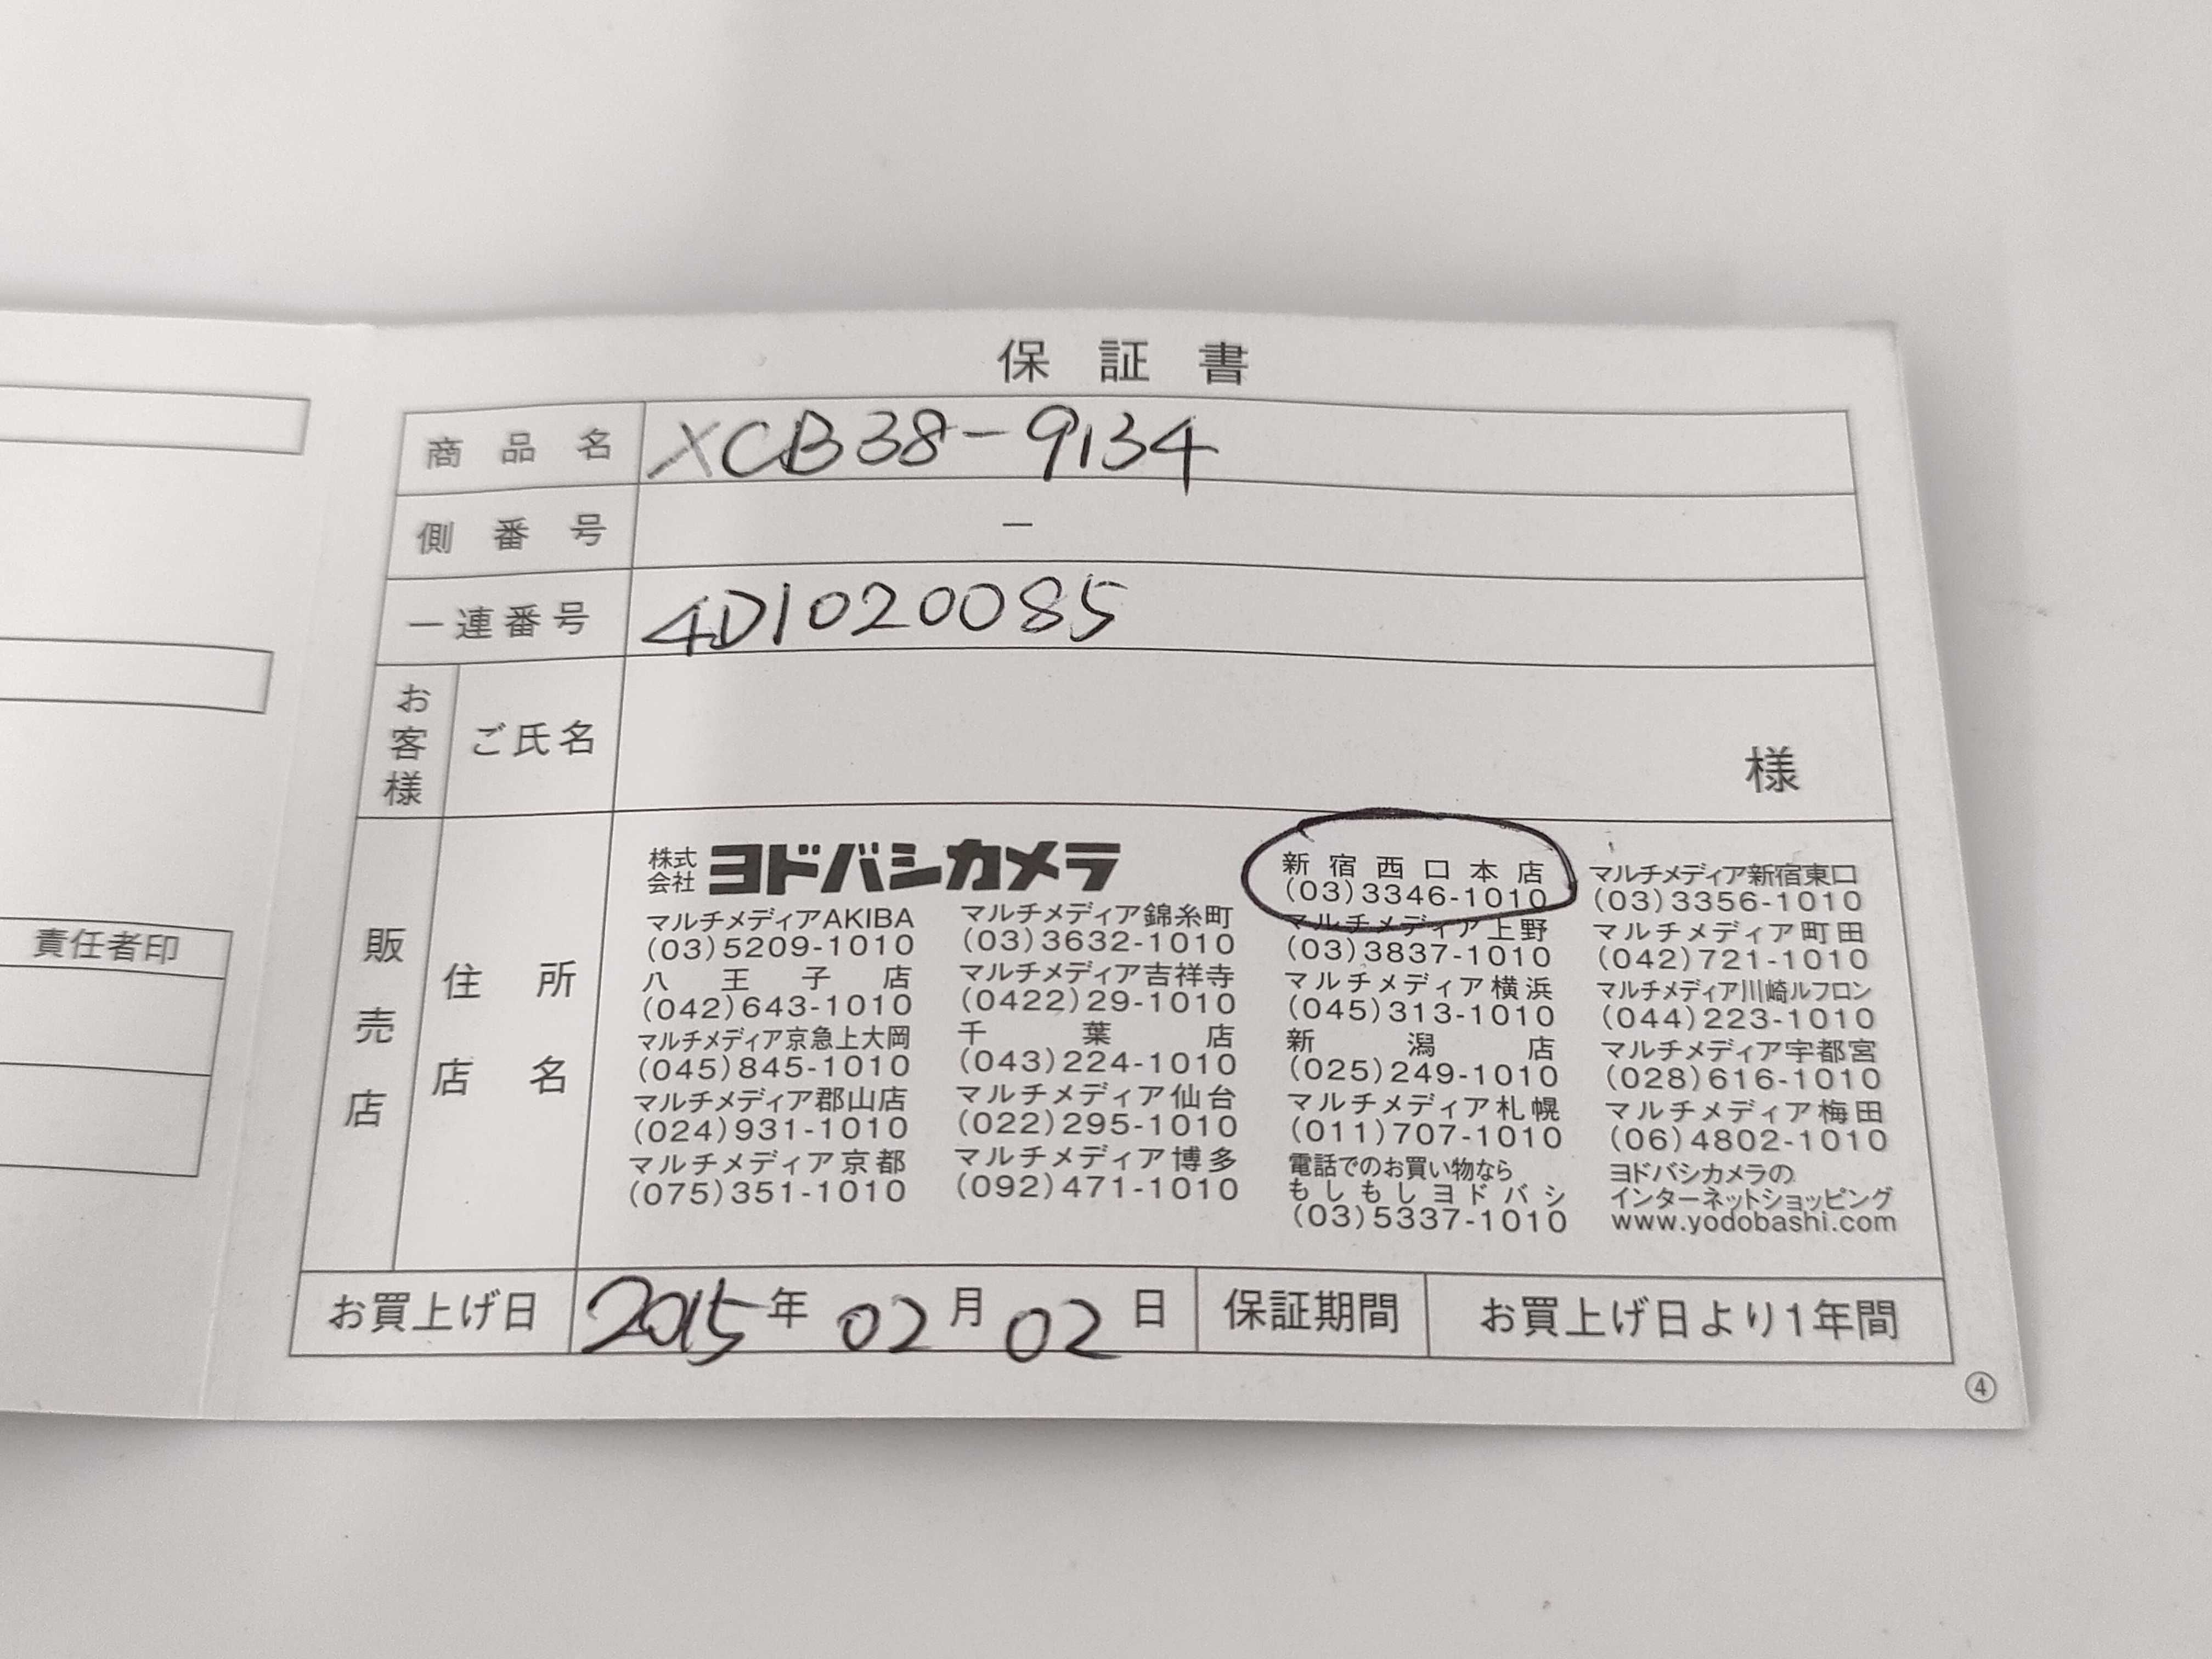 保証書
商品名 XCB38-9134
側番号 －
一連番号 4D1020085
お客様 ご氏名 様
販売店 住所 店名
株式会社 ヨドバシカメラ
新宿西口本店 マルチメディア新宿東口
(03)3346-1010 (03)3356-1010
マルチメディアAKIBA マルチメディア錦糸町 マルチメディア上野 マルチメディア町田
(03)5209-1010 (03)3632-1010 (03)3837-1010 (042)721-1010
八王子店 マルチメディア吉祥寺 マルチメディア横浜 マルチメディア川崎ルフロン
(042)643-1010 (0422)29-1010 (045)313-1010 (044)223-1010
マルチメディア京急上大岡 千葉店 新潟店 マルチメディア宇都宮
(045)845-1010 (043)224-1010 (025)249-1010 (028)616-1010
マルチメディア郡山店 マルチメディア仙台 マルチメディア札幌 マルチメディア梅田
(024)931-1010 (022)295-1010 (011)707-1010 (06)4802-1010
マルチメディア京都 マルチメディア博多 電話でのお買い物なら ヨドバシカメラの
(075)351-1010 (092)471-1010 もしもしヨドバシ インターネットショッピング
(03)5337-1010 www.yodobashi.com
お買上げ日 2015年02月02日 保証期間 お買上げ日より1年間
④
責任者印